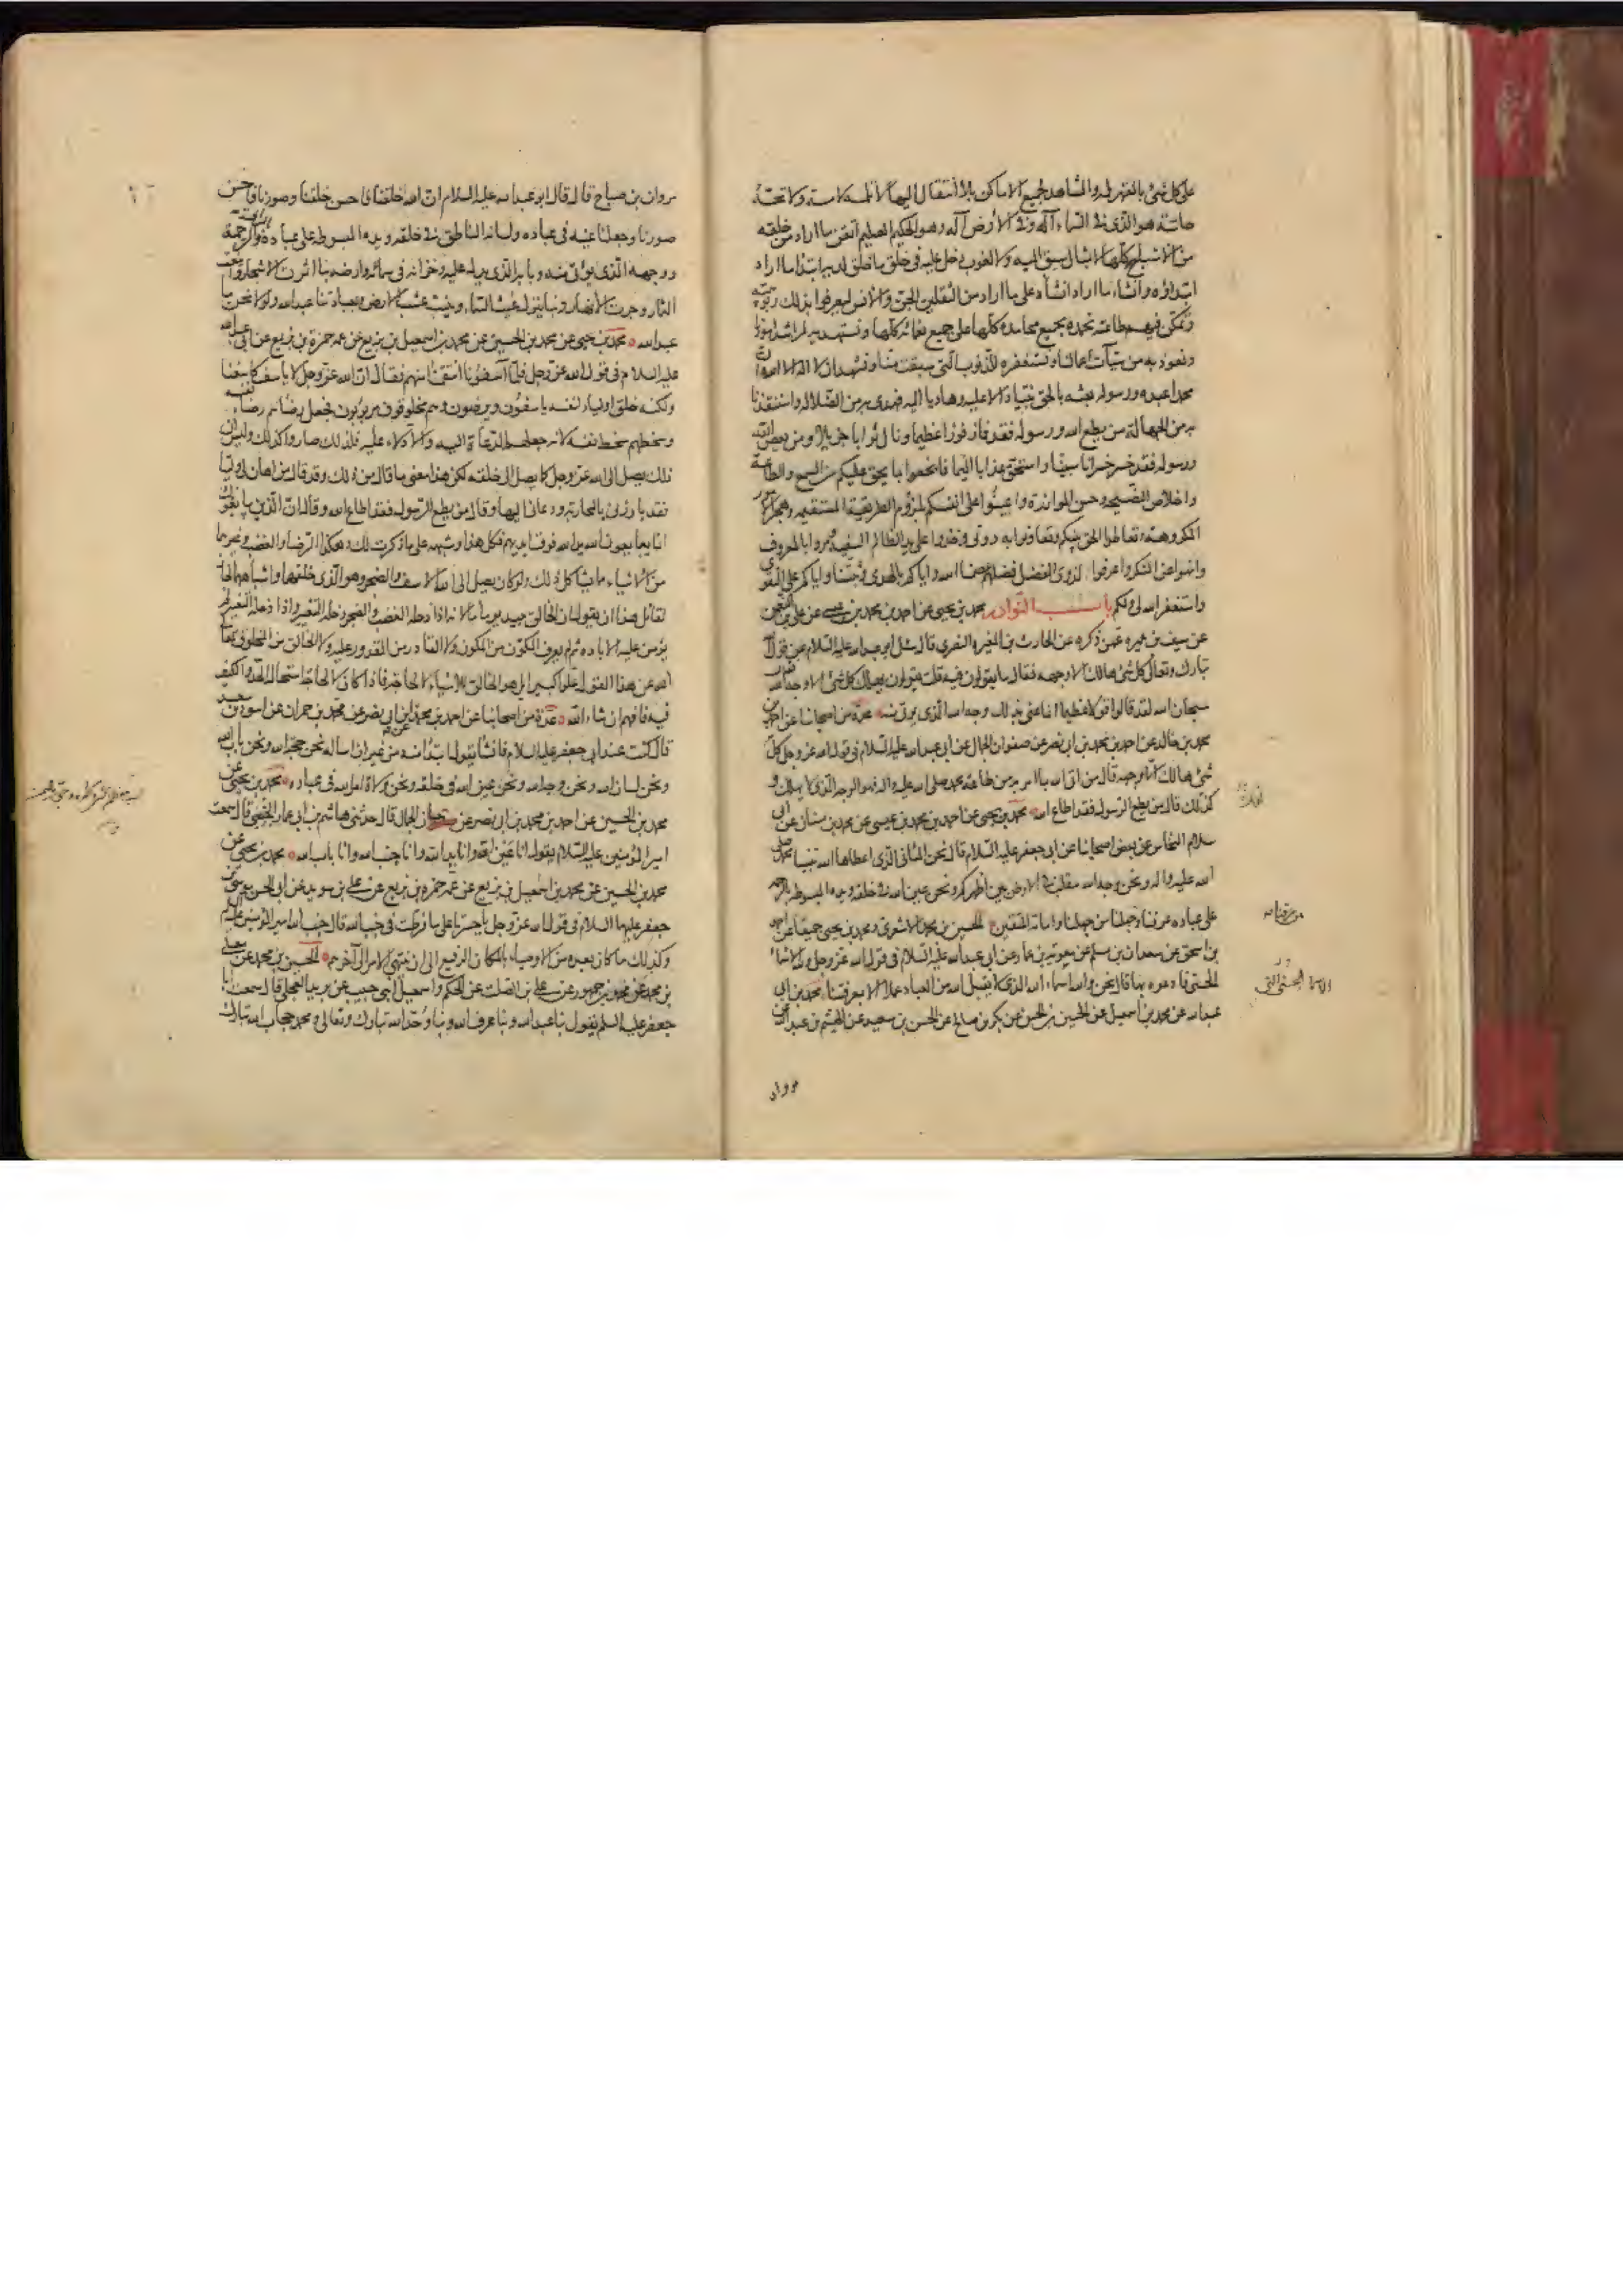 على كل شئ بالقهر له والمشاهد لجميع الاماكن بلا انتقال اليها لا تلمسه لامسة ولا تحسه
حاسة هو الذى فى السماء اله وفى الارض اله وهو الحكيم العليم اتقن ما اراد من خلقه
من الاشباح كلها لا بمثال سبق اليه ولا لغوب دخل عليه فى خلق ما خلق لديه ابتدا ما اراد
ابتداؤه وانشاء ما اراد انشاءه على ما اراد من الثقلين الجن والانس ليعرفوا بذلك ربوبيته
وتمكن فيهم طاعته نحمده بجميع محامده كلها على جميع نعمائه كلها ونستهديه لمراشد امورنا
ونعوذ به من سيّآت اعمالنا ونستغفره للذنوب التى سبقت منا ونشهد ان لا اله الا الله وان
محمدا عبده ورسوله بعثه بالحق نبيا دالا عليه وهاديا اليه فهدى به من الضلالة واستنقذنا
به من الجهالة من يطع الله ورسوله فقد فاز فوزا عظيما ونال ثوابا جزيلا ومن يعص الله
ورسوله فقد خسر خسرانا مبينا واستحق عذابا اليما فانجعوا بما يحق عليكم من السمع والطاعة
واخلاص النصيحة وحسن الموازرة واعينوا على انفسكم بلزوم الطريقة المستقيمة وهجر الامور
المكروهة وتعاطوا الحق بينكم وتعاونوا به دونى وخذوا على يد الظالم السفيه ومروا بالمعروف
وانهوا عن المنكر واعرفوا لذوى الفضل فضلهم عصمنا الله واياكم بالهدى وثبتنا واياكم على التقوى
واستغفر الله لى ولكم باب النوادر محمد بن يحيى عن احمد بن محمد بن عيسى عن على بن النعمن
عن سيف بن عميرة عمن ذكره عن الحارث بن المغيرة النصرى قال سئل ابو عبد الله عليه السلام عن قول الله
تبارك وتعالى كل شئ هالك الا وجهه فقال ما يقولون فيه قلت يقولون يهلك كل شئ الا وجه الله فقال
سبحان الله لقد قالوا قولا عظيما انما عنى بذلك وجه الله الذى يؤتى منه عدة من اصحابنا عن احمد بن
محمد بن خالد عن احمد بن محمد بن ابى نصر عن صفوان الجمال عن ابى عبد الله عليه السلام فى قول الله عز وجل كل
شئ هالك الا وجهه قال من اتى الله بما امر به من طاعة محمد صلى الله عليه واله فهو الوجه الذى لا يهلك و
كذلك قال من يطع الرسول فقد اطاع الله محمد بن يحيى عن احمد بن محمد بن عيسى عن محمد بن سنان عن ابى
سلام النخاس عن بعض اصحابنا عن ابى جعفر عليه السلام قال نحن المثانى الذى اعطاها الله نبينا محمدا صلى
الله عليه واله ونحن وجه الله نتقلب فى الارض بين اظهركم ونحن عين الله فى خلقه ويده المبسوطة بالرحمة
على عباده عرفنا من عرفنا وجهلنا من جهلنا وامامة المتقين الحسين بن محمد الاشعرى ومحمد بن يحيى جميعا عن احمد
بن اسحق عن سعدان بن مسلم عن معوية بن عمار عن ابى عبد الله عليه السلام فى قول الله عز وجل ولله الاسماء
الحسنى فادعوه بها قال نحن والله اسماء الله الذى لا يقبل الله من العباد عملا الا بمعرفتنا محمد بن ابى
عبد الله عن محمد بن اسمعيل عن الحسين بن الحسن عن بكر بن صالح عن الحسن بن سعيد عن الهيثم بن عبد الله عن
مروان
من عرفنا
الاسماء الحسنى التى
مروان بن صباح قال قال ابو عبد الله عليه السلام ان الله خلقنا فاحسن خلقنا وصورنا فاحسن
صورنا وجعلنا عينه فى عباده ولسانه الناطق فى خلقه ويده المبسوطة على عباده بالرافة والرحمة
ووجهه الذى يؤتى منه وبابه الذى يدل عليه وخزانه فى سمائه وارضه بنا اثمرت الاشجار واينعت
الثمار وجرت الانهار وبنا ينزل غيث السماء وينبت عشب الارض وبعبادتنا عبد الله ولولا نحن ما
عبد الله محمد بن يحيى عن محمد بن الحسين عن محمد بن اسمعيل بن بزيع عن عمه حمزة بن بزيع عن ابى عبد الله
عليه السلام فى قول الله عز وجل فلما آسفونا انتقمنا منهم فقال ان الله عز وجل لا ياسف كاسفنا
ولكنه خلق اولياء لنفسه ياسفون ويرضون وهم مخلوقون مربوبون فجعل رضاهم رضاء نفسه
وسخطهم سخط نفسه لانه جعلهم الدعاة اليه والادلاء عليه فلذلك صاروا كذلك وليس ان
ذلك يصل الى الله عز وجل كما يصل الى خلقه لكن هذا معنى ما قال من ذلك وقد قال من اهان لى وليا
فقد بارزنى بالمحاربة ودعانى اليها وقال من يطع الرسول فقد اطاع الله وقال ان الذين يبايعونك
انما يبايعون الله يد الله فوق ايديهم فكل هذا وشبهه على ما ذكرت لك وهكذا الرضا والغضب وغيرهما
من الاشياء مما يشاكل ذلك ولو كان يصل الى الله الاسف والضجر وهو الذى خلقهما وانشأهما لجاز
لقائل هذا ان يقول ان الخالق يبيد يوما ما لانه اذا دخله الغضب والضجر دخله التغيير واذا دخله التغيير لم
يؤمن عليه الابادة ثم لم يعرف المكون من المكون ولا القادر من المقدور عليه ولا الخالق من المخلوق تعالى
الله عن هذا القول علوا كبيرا بل هو الخالق للاشياء لا لحاجة فاذا كان لا لحاجة استحال الحد والكيف
فيه فافهم ان شاء الله عدة من اصحابنا عن احمد بن محمد عن ابن ابى نصر عن محمد بن حمران عن اسود بن سعيد
قال كنت عند ابى جعفر عليه السلام فانشأ يقول ابتداء منه من غير ان اساله نحن حجة الله ونحن باب الله
ونحن لسان الله ونحن وجه الله ونحن عين الله فى خلقه ونحن ولاة امر الله فى عباده محمد بن يحيى عن
محمد بن الحسين عن احمد بن محمد بن ابى نصر عن حسان الجمال قال حدثنى هاشم بن ابى عمار الجنبى قال سمعت
امير المؤمنين عليه السلام يقول انا عين الله وانا يد الله وانا جنب الله وانا باب الله محمد بن يحيى عن
محمد بن الحسين عن محمد بن اسمعيل بن بزيع عن عمه حمزة بن بزيع عن على بن سويد عن ابى الحسن موسى بن
جعفر عليهما السلام فى قول الله عز وجل يا حسرتا على ما فرطت فى جنب الله قال جنب الله امير المؤمنين عليه السلام
وكذلك ما كان بعده من الاوصياء بالمكان الرفيع الى ان ينتهى الامر الى آخرهم الحسين بن محمد عن معلى
بن محمد عن محمد بن جمهور عن على بن الصلت عن الحكم واسمعيل ابنى حبيب عن بريد العجلى قال سمعت ابا
جعفر عليه السلم يقول بنا عبد الله وبنا عرف الله وبنا وحد الله تبارك وتعالى ومحمد حجاب الله تبارك